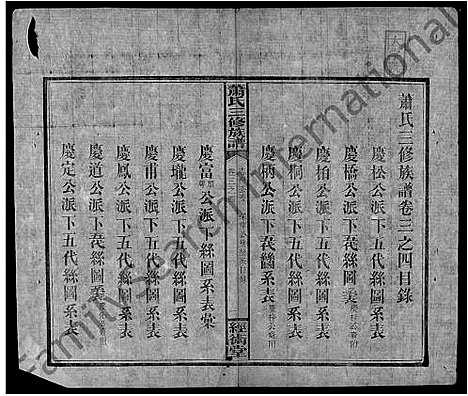 蕭氏三修族譜卷三之四目錄
慶松公派下五代絲圖系表
慶橋公派下五代絲圖
慶柏公派下五代絲圖系表
慶桐公派下五代絲圖系表
慶柄公派下
蕭氏三修族譜
經術堂
慶富公派下 絲圖系表
慶瓏公派下五代絲圖系表
慶甫公派下五代絲圖系表
慶鳳公派下五代絲圖系表
慶道公派下五代絲圖系表
慶定公派下五代絲圖系表
FamilySearch International